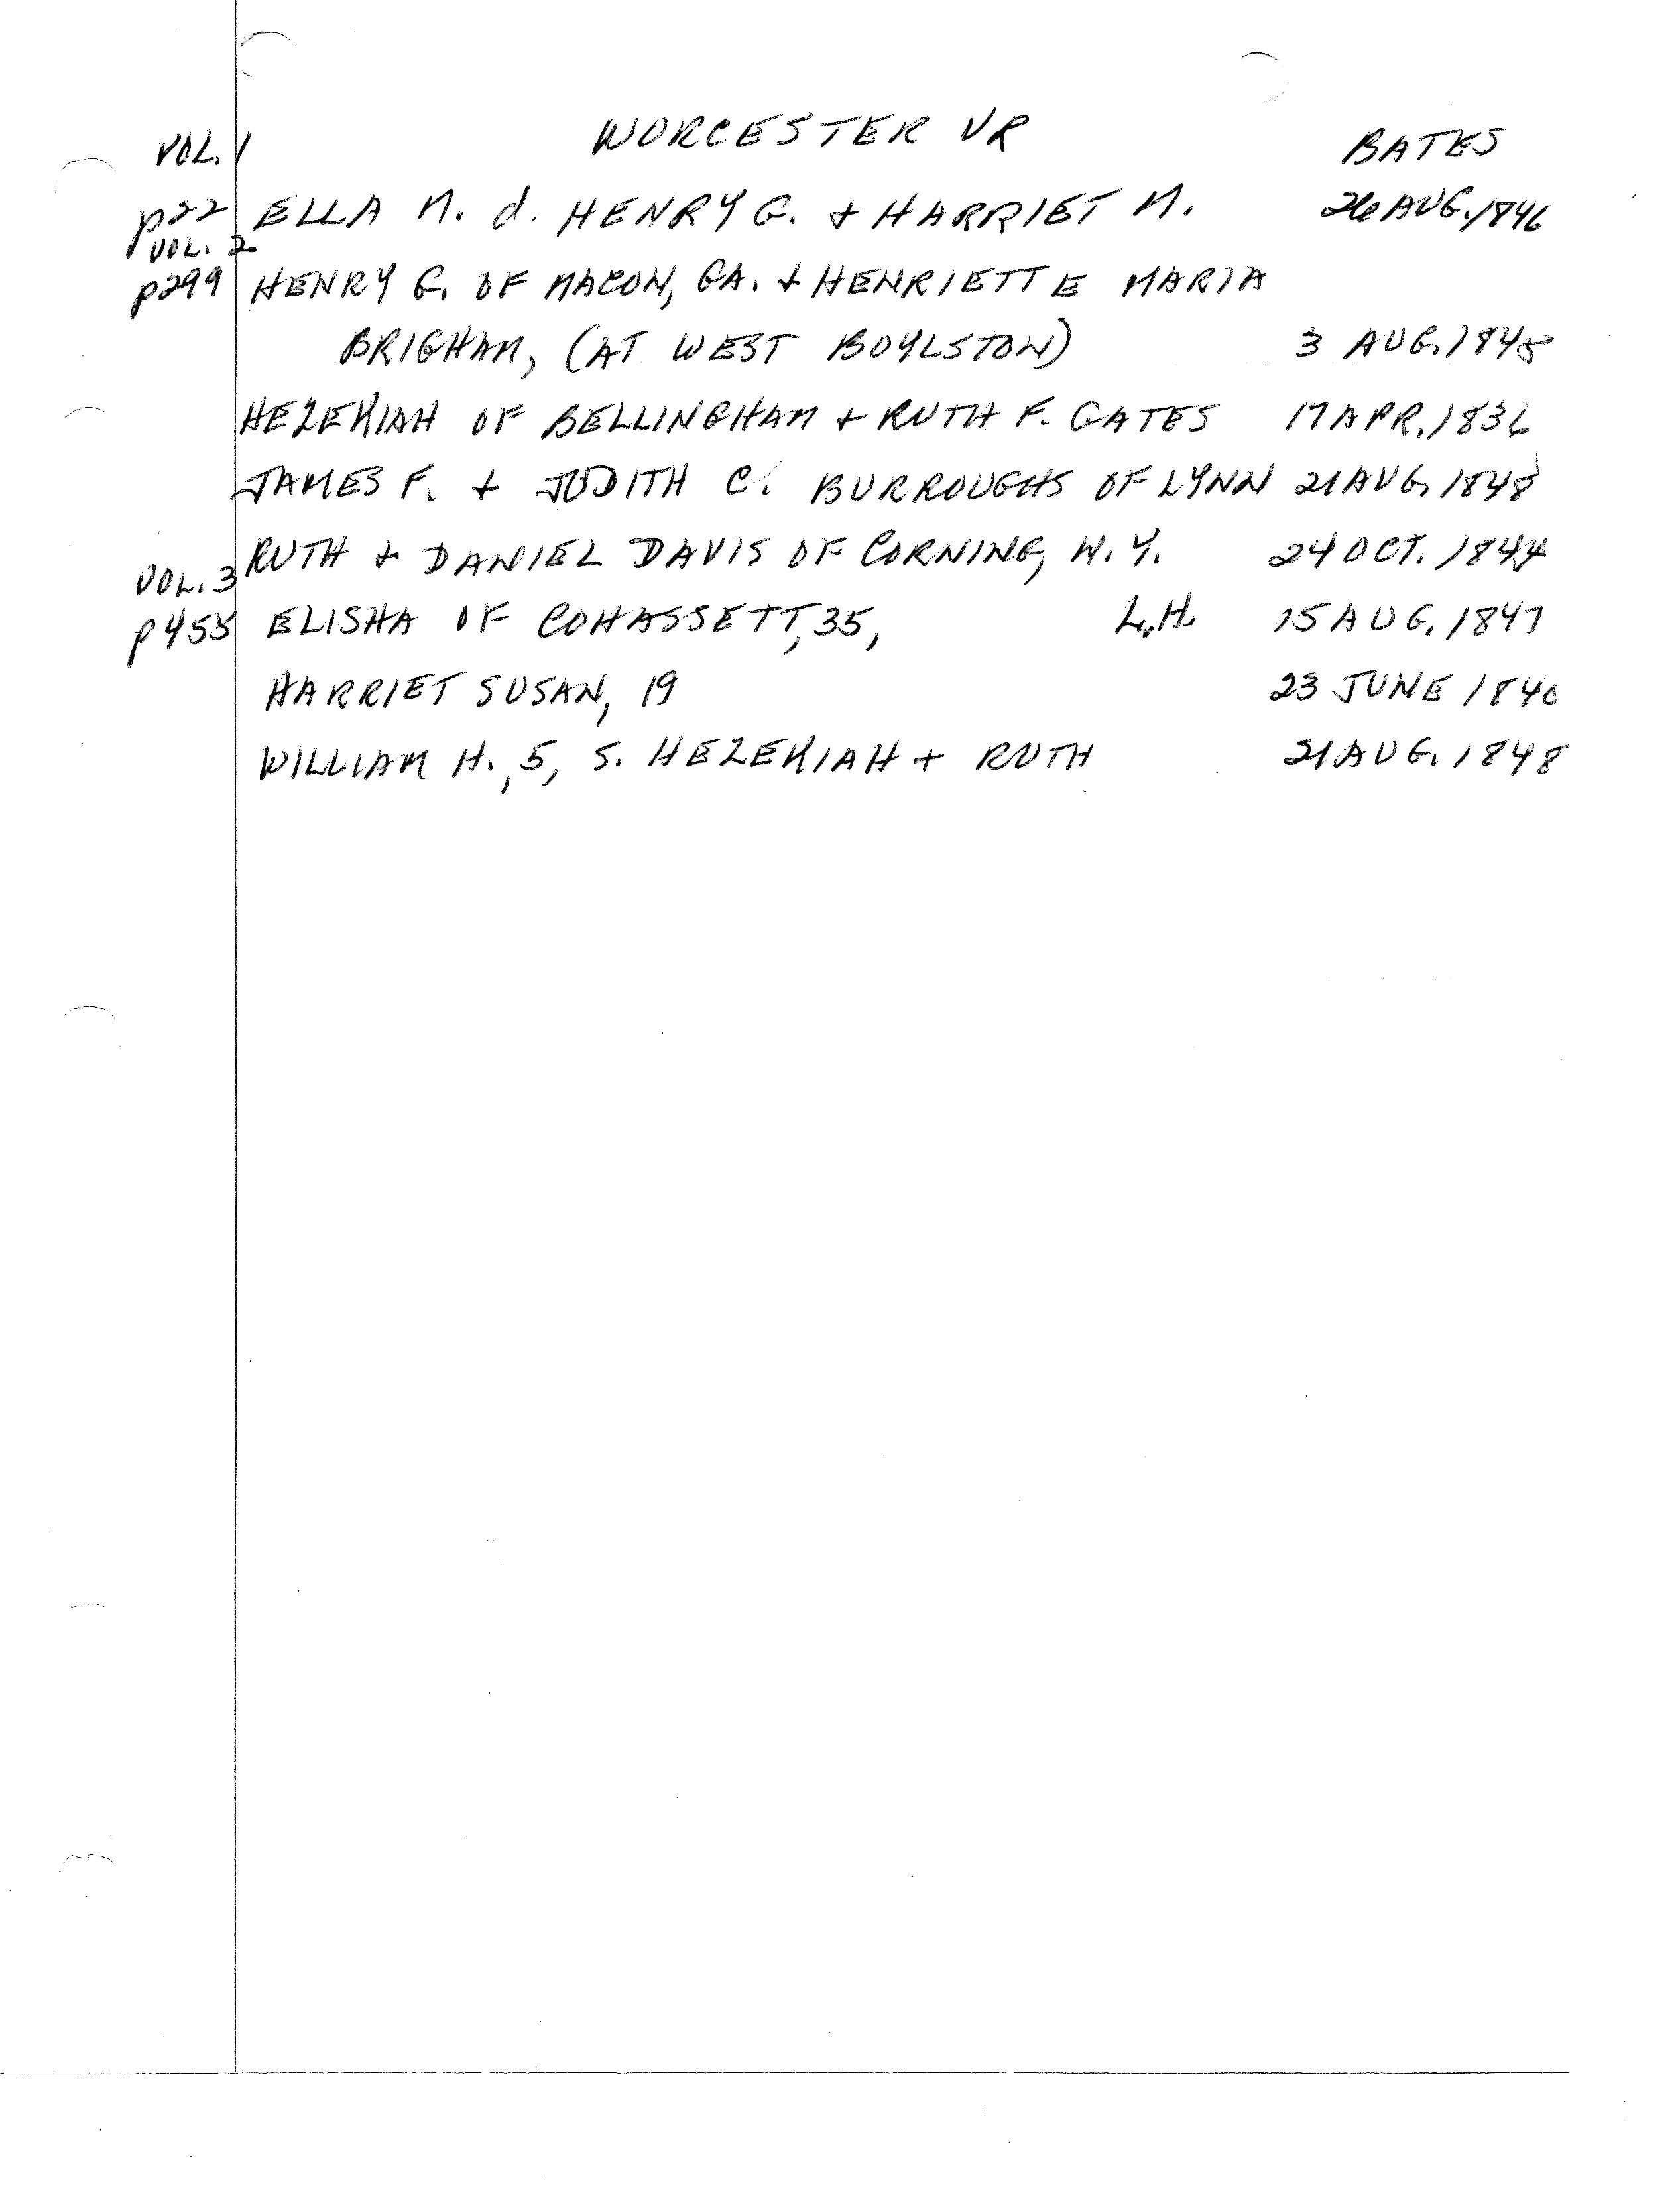 VOL. 1 WORCESTER VR BATES
p22 ELLA M. d. HENRY G. + HARRIET M. 26 AUG. 1846
VOL. 2
p299 HENRY G. OF MACON, GA. + HENRIETTE MARIA
BRIGHAM, (AT WEST BOYLSTON) 3 AUG. 1845
HEZEKIAH OF BELLINGHAM + RUTH F. GATES 17 APR. 1836
JAMES F. + JUDITH C. BURROUGHS OF LYNN 21 AUG. 1848
RUTH + DANIEL DAVIS OF CORNING, N.Y. 24 OCT. 1844
VOL. 3
p455 ELISHA OF COHASSETT, 35, L.H. 15 AUG. 1847
HARRIET SUSAN, 19 23 JUNE 1840
WILLIAM H., 5, S. HEZEKIAH + RUTH 21 AUG. 1848